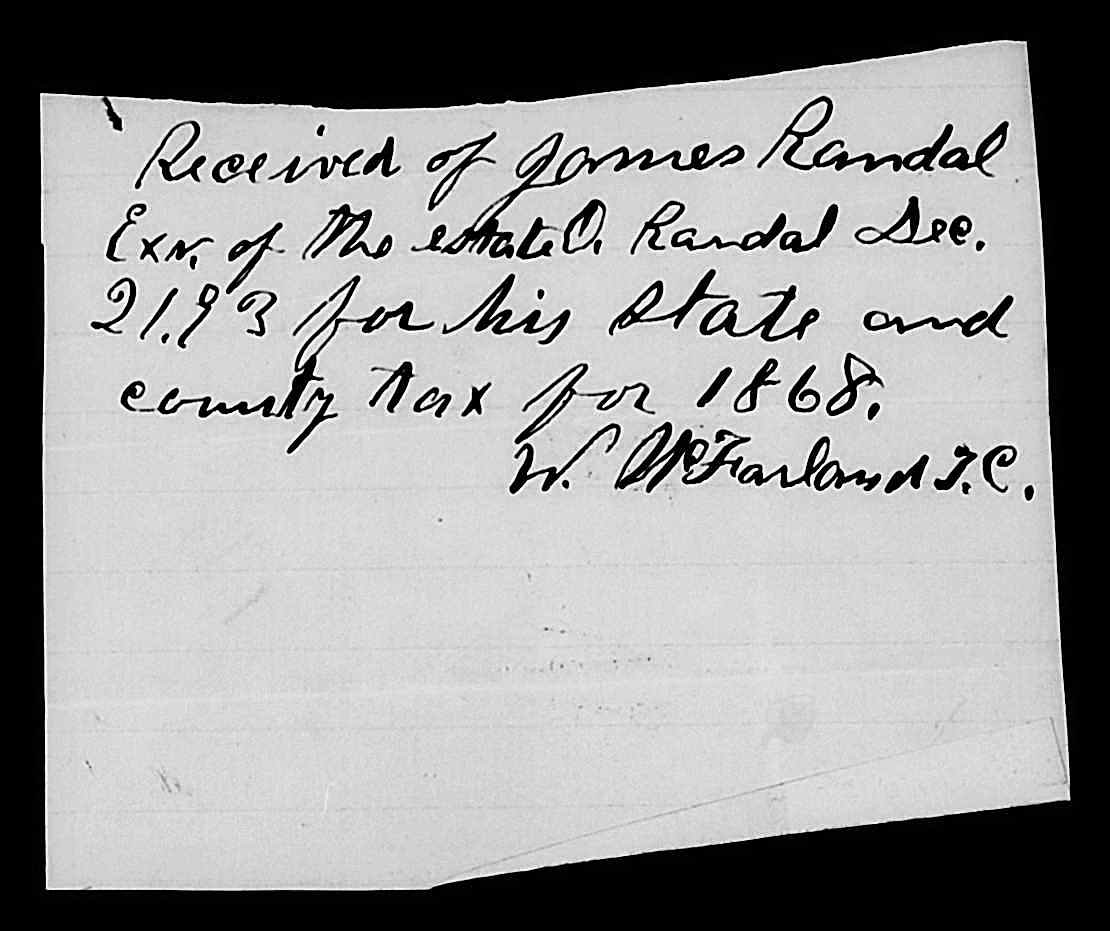 Received of James Randal
Exr. of the estate O. Randal Dec.
21.93 for his state and
county tax for 1868.
W. McFarland T.C.